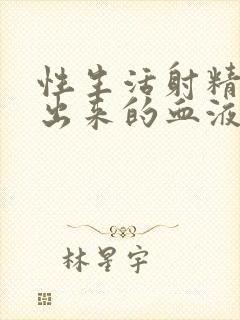 性生活射精
出来的血液
林星宇